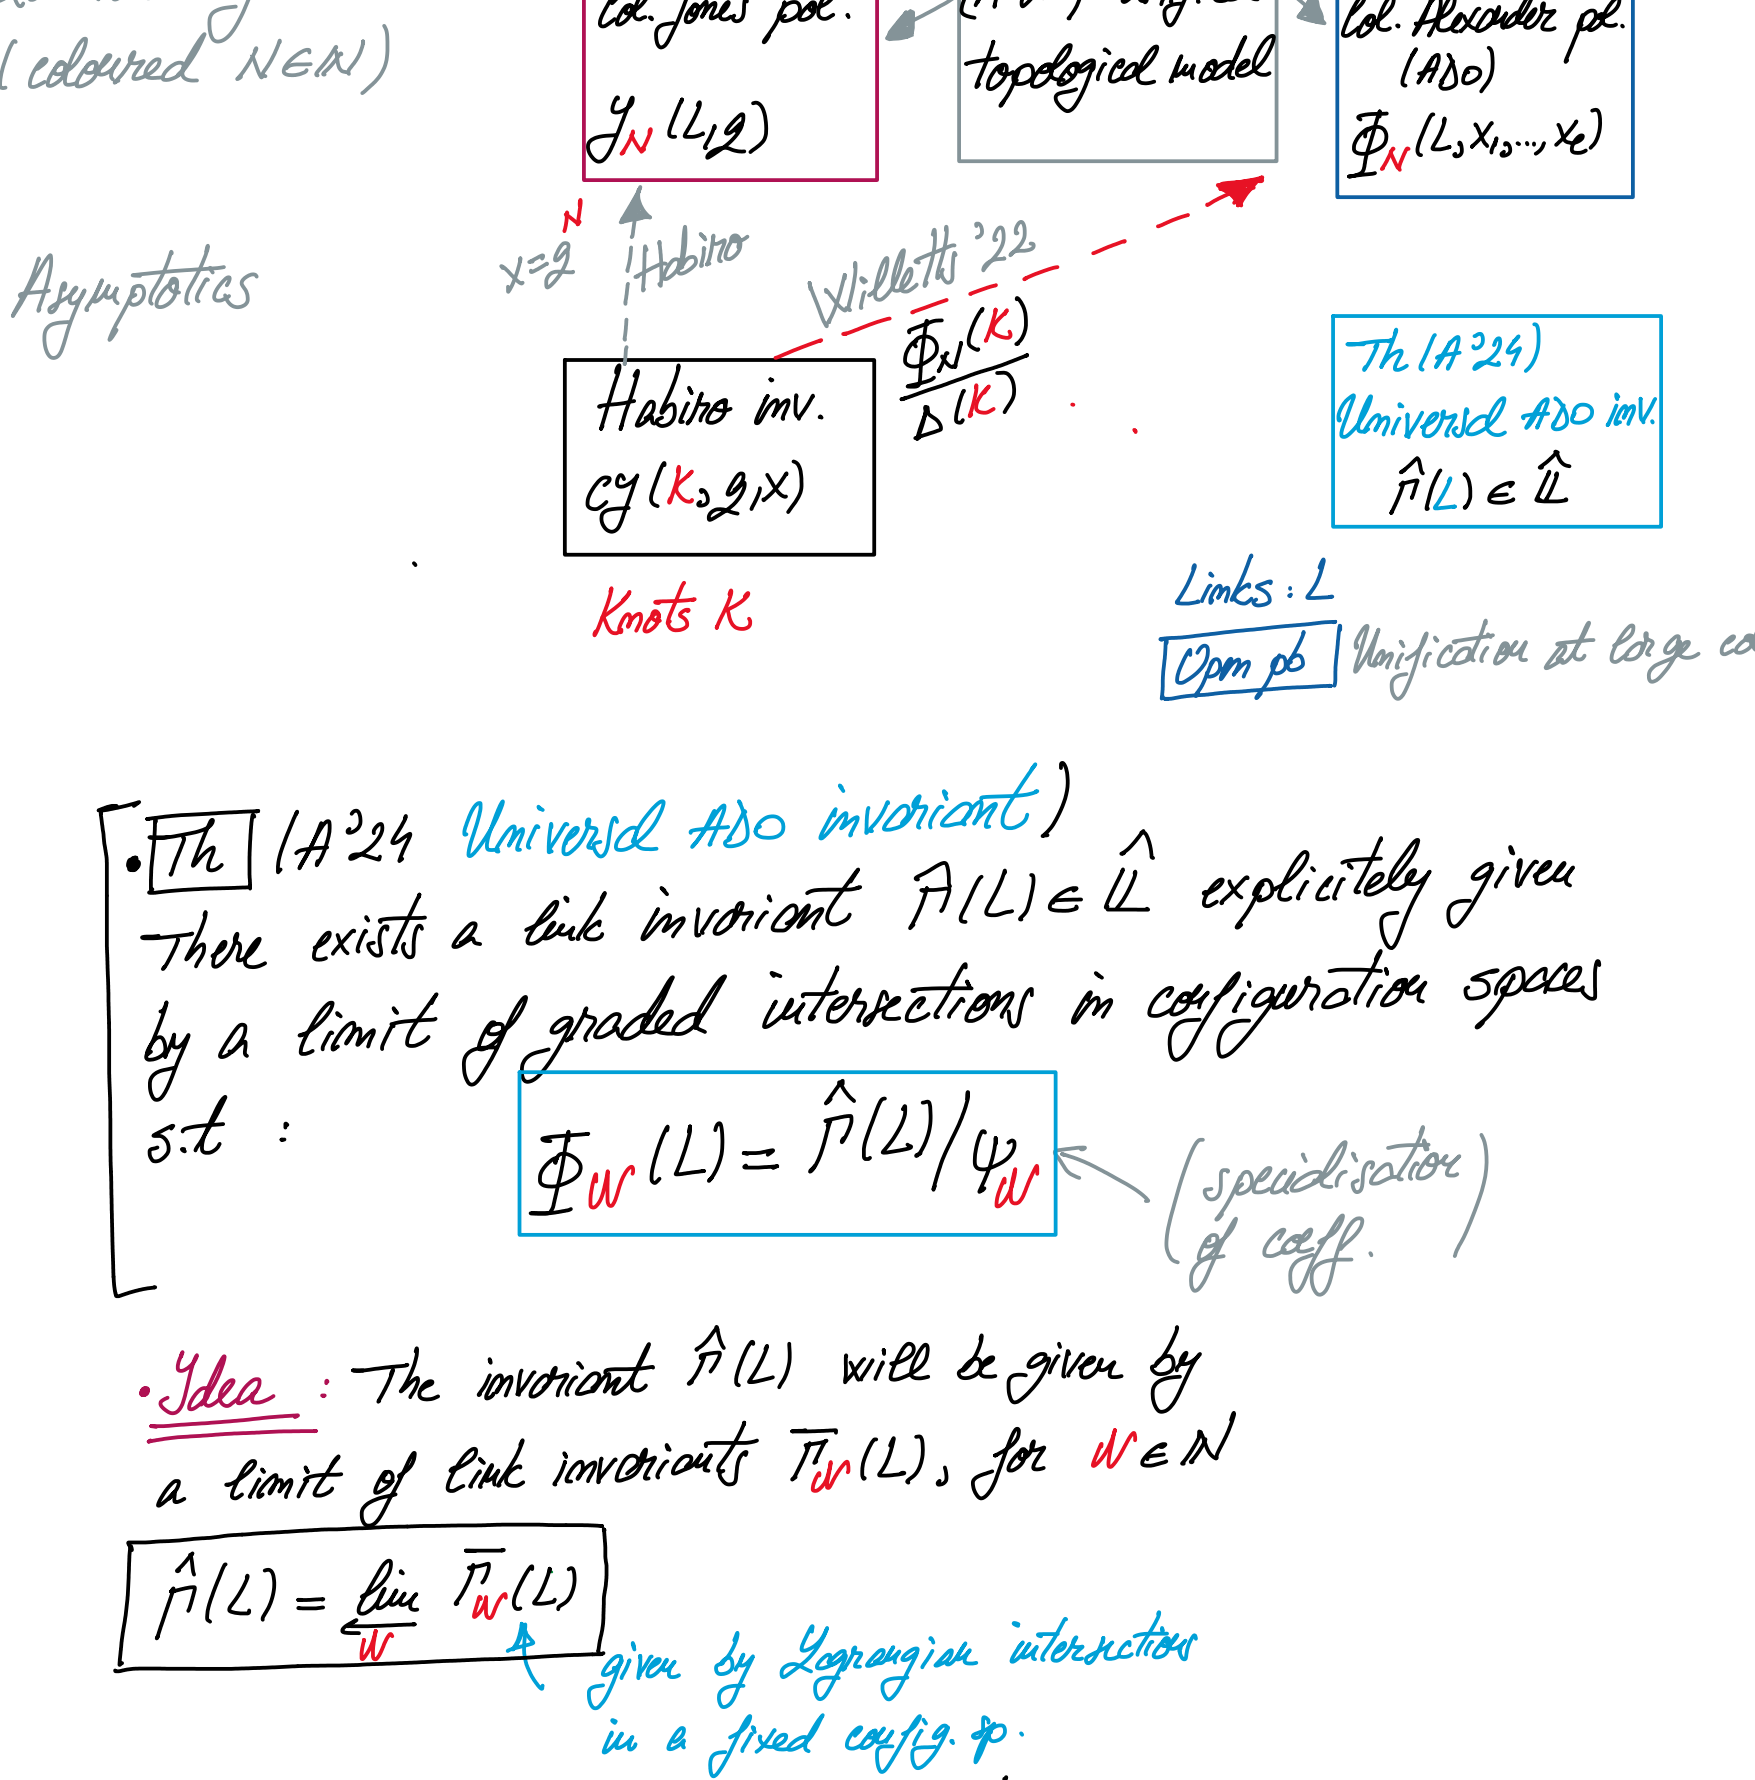 (coloured N∈ℕ)
Col. Jones pol.
J_N(L,q)
topological model
Col. Alexander pol.
(ADO)
Φ_N(L,x₁,...,x_l)
Asymptotics
x=q^N
Habiro
Willetts '22
Φ_N(K)
Δ(K)
Habiro inv.
cy(K,q,x)
Knots K
Th (A'24)
Universal ADO inv.
Γ̂(L) ∈ 𝕃̂
Links: L
Open pb
Unification at large
• Th (A'24 Universal ADO invariant)
There exists a link invariant Γ̂(L) ∈ 𝕃̂ explicitely given
by a limit of graded intersections in configuration spaces
s.t :
Φ_N(L) = Γ̂(L)/ψ_N
(specialisation
of coeff.)
• Idea : The invariant Γ̂(L) will be given by
a limit of link invariants Γ̅_N(L), for N∈ℕ
Γ̂(L) = lim← N Γ̅_N(L)
given by Lagrangian intersections
in a fixed config. sp.